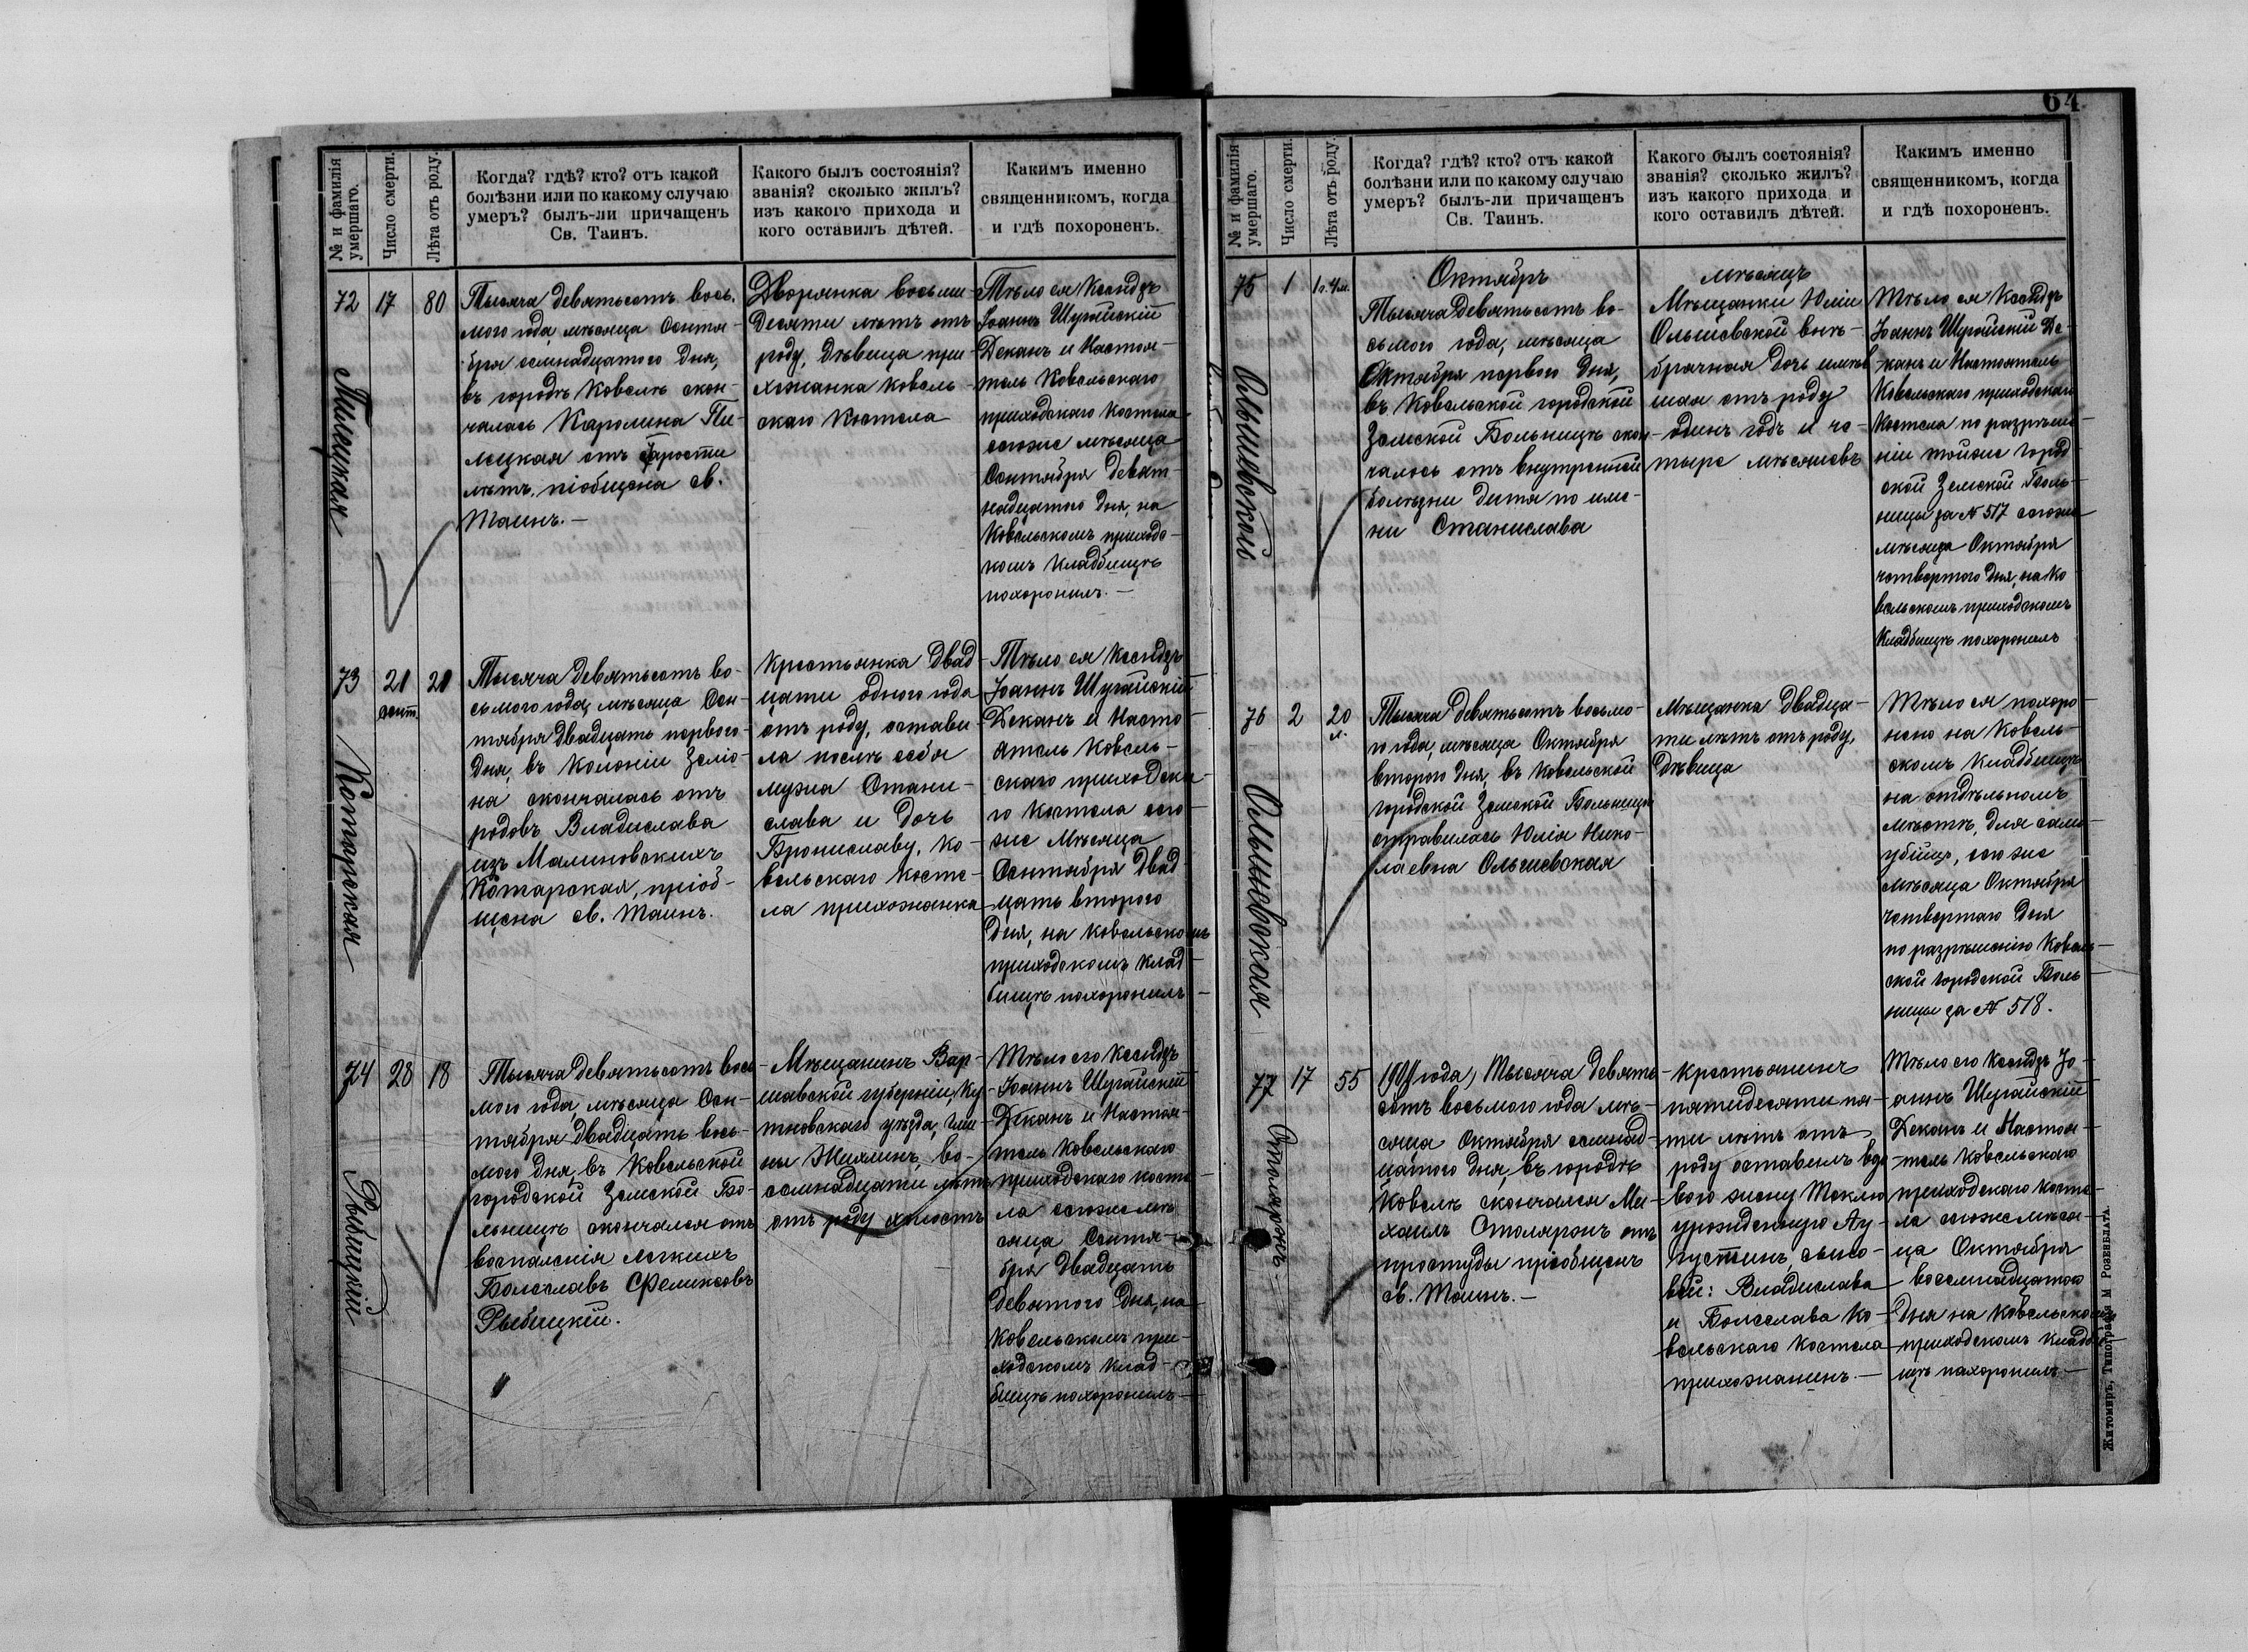 64
№ и фамилія
умершаго.
Число смерти.
Лѣта отъ роду.
Когда? гдѣ? кто? отъ какой
болѣзни или по какому случаю
умеръ? былъ-ли причащенъ
Св. Таинъ.
Какого былъ состоянія?
званія? сколько жилъ?
изъ какого прихода и
кого оставилъ дѣтей.
Какимъ именно
священникомъ, когда
и гдѣ похороненъ.
72
17
80
Пилецкая
Тысяча девятьсотъ вось-
мого года, мѣсяца Сентя-
бря семнадцатого дня,
въ городѣ Ковелѣ скон-
чалась Каролина Пи-
лецкая отъ старости
лѣтъ, пріобщена св.
Таинъ. —
Дворянка восьми-
десяти лѣтъ отъ
роду, дѣвица при-
хожанка Ковель-
скаго Костела
Тѣло ея Ксендзъ
Іоаннъ Шугайскій
Деканъ и Настоя-
тель Ковельскаго
приходскаго Костела
сегоже мѣсяца
Сентября девят-
надцатого дня, на
Ковельскомъ приходс-
комъ кладбищѣ
похоронилъ. —
73
21
сент.
21
Котарская
Тысяча девятьсотъ во-
сьмого года, мѣсяца Сен-
тября двадцать первого
дня, въ колоніи Зеліо-
на скончалась отъ
родовъ Владислава
изъ Малиновскихъ
Котарская, пріоб-
щена св. Таинъ.
Крестьянка двад-
цати одного года
отъ роду, остави-
ла послѣ себя
мужа Стани-
слава и дочь
Брониславу, Ко-
вельскаго Косте-
ла прихожанка
Тѣло ея Ксендзъ
Іоаннъ Шугайскій
Деканъ и Насто-
ятель Ковель-
скаго приходска-
го Костела сего-
же Мѣсяца
Сентября двад-
цать второго
дня, на Ковельскомъ
приходскомъ клад-
бищѣ похоронилъ —
74
28
18
Рыбицкій
Тысяча девятьсотъ вось-
мого года, мѣсяца Сен-
тября двадцать вось-
мого дня, въ Ковельской
городской Земской Бо-
льницѣ скончался отъ
воспаленія легкихъ
Болеславъ Феликсовъ
Рыбицкій.
Мѣщанинъ Вар-
шавской губерніи, Ку-
тновскаго уѣзда, гми-
ны Жихлинъ, во-
семнадцати лѣтъ
отъ роду холостъ
Тѣло его Ксендзъ
Іоаннъ Шугайскій
Деканъ и Настоя-
тель Ковельскаго
приходскаго косте-
ла сегоже мѣ-
сяца Сентя-
бря двадцать
девятого дня, на
Ковельскомъ при-
ходскомъ клад-
бищѣ похоронилъ —
№ и фамилія
умершаго.
Число смерти.
Лѣта отъ роду.
Когда? гдѣ? кто? отъ какой
болѣзни или по какому случаю
умеръ? былъ-ли причащенъ
Св. Таинъ.
Какого былъ состоянія?
званія? сколько жилъ?
изъ какого прихода и
кого оставилъ дѣтей.
Какимъ именно
священникомъ, когда
и гдѣ похороненъ.
Октябрь
мѣсяцъ
75
1
1г. 4м.
Ольшевской
Тысяча девятьсотъ во-
сьмого года, мѣсяца
Октября первого дня,
въ Ковельской городской
Земской Больницѣ скон-
чалось отъ внутренней
болѣзни дитя по име-
ни Станислава
Мѣщанки Юліи
Ольшевской внѣ-
брачная дочь имѣв-
шая отъ роду
одинъ годъ и че-
тыре мѣсяцевъ
Тѣло ея Ксендзъ
Іоаннъ Шугайскій Де-
канъ и Настоятель
Ковельскаго приходскаго
Костела по разрѣше-
ніи тойже город-
ской Земской Боль-
ницы за № 517 сегоже
мѣсяца Октября
четвертого дня, на Ко-
вельскомъ приходскомъ
Кладбищѣ похоронилъ
76
2
20
л.
Ольшевская
Тысяча девятьсотъ восьмо-
го года, мѣсяца Октября
второго дня, въ Ковельской
городской Земской Больницѣ
отравилась Юлія Нико-
лаевна Ольшевская
Мѣщанка двадца-
ти лѣтъ отъ роду,
дѣвица
Тѣло ея похоро-
нено на Ковель-
скомъ кладбищѣ
на отдѣльномъ
мѣстѣ, для само-
убійцъ, сегоже
мѣсяца Октября
четвертаго дня
по разрѣшенію Ковель-
ской городской Боль-
ницы за № 518.
77
17
55
Столяронъ
Тысяча девять-
сотъ восьмого года мѣ-
сяца Октября семнад-
цатого дня, въ городѣ
Ковелѣ скончался Ми-
хаилъ Столяронъ отъ
простуды пріобщенъ
св. Таинъ. —
Крестьянинъ
пятидесяти пя-
ти лѣтъ отъ
роду оставилъ вдо-
вою жену Теклю
урожденную Ау-
густинъ, сыно-
вей: Владислава
и Болеслава Ко-
вельскаго Костела
прихожанинъ. —
Тѣло его Ксендзъ Іо-
аннъ Шугайскій
Деканъ и Настоя-
тель Ковельскаго
приходскаго Косте-
ла сегоже мѣся-
ца Октября
восемнадцатого
дня на Ковельскомъ
приходскомъ кладби-
щѣ похоронилъ —
Житомиръ, Типографія М. Розенблата.